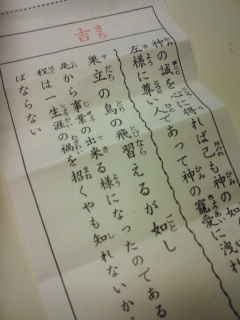 吉
神の誠を心に得れば己も神の如
左様に尊い人であって神の寵愛に洩れ
巣立の鳥の飛習えるが如し
是から事業の出来る様になったのである
程は、生涯の禍を招くやも知れないか
ばならない